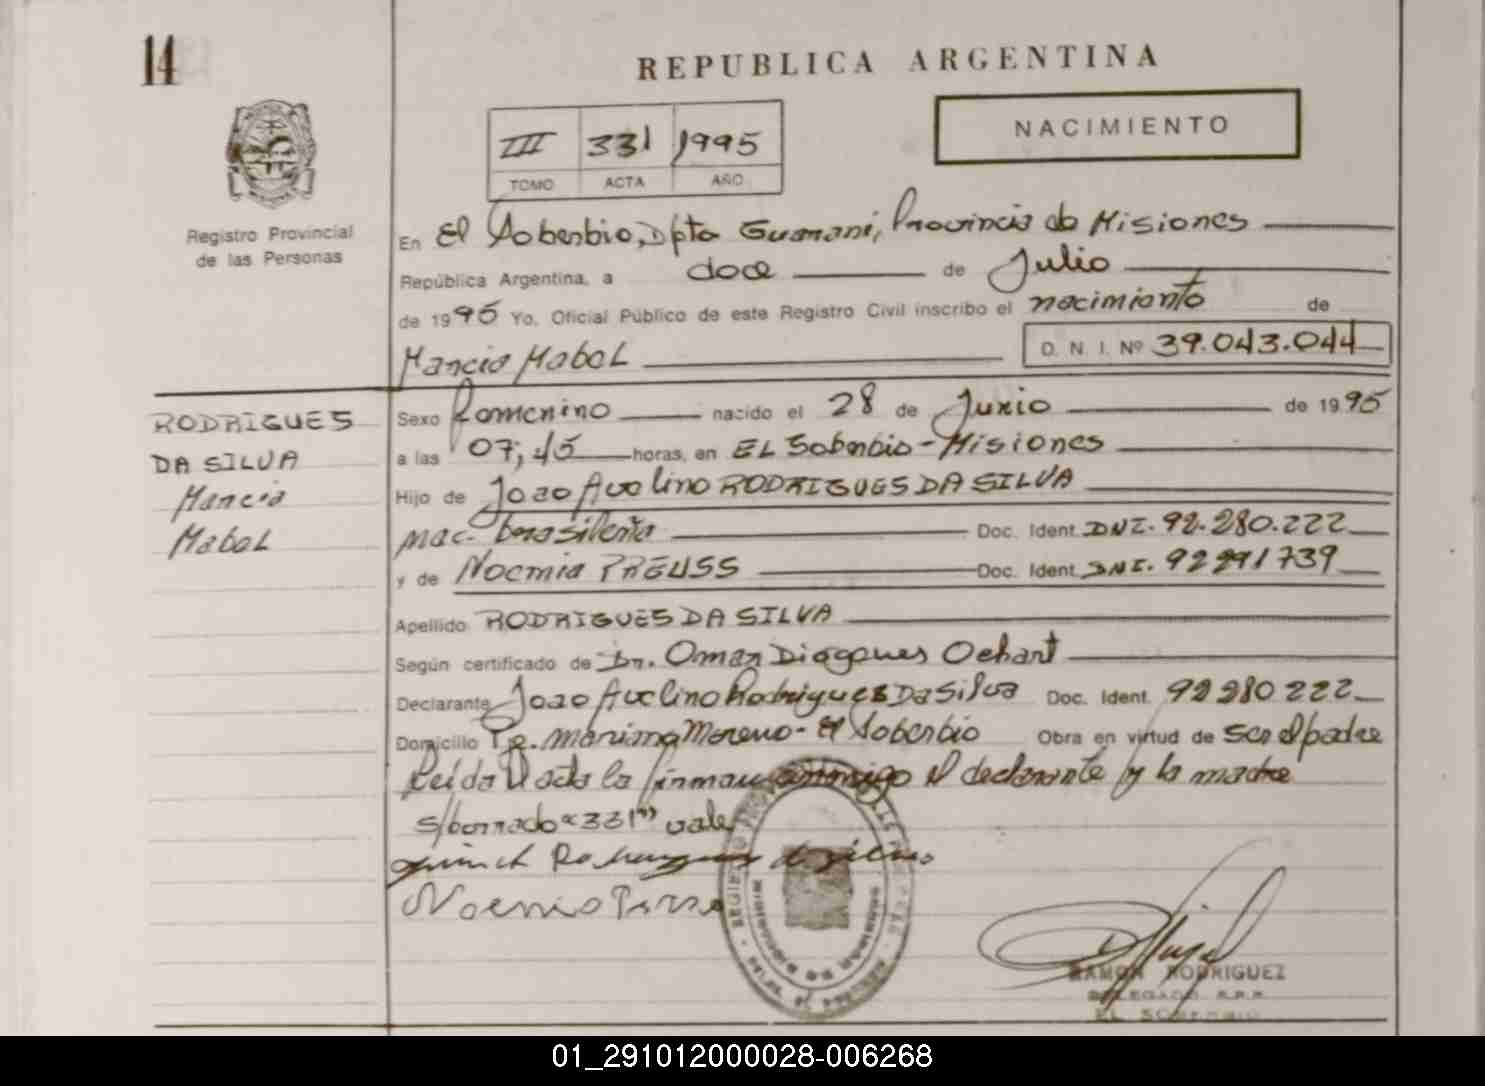 14
REPUBLICA ARGENTINA
III 331 1995
TOMO ACTA AÑO
NACIMIENTO
Registro Provincial
de las Personas
En El Soberbio, Dpto Guarani, Provincia de Misiones
República Argentina, a doce de Julio
de 1995 Yo, Oficial Público de este Registro Civil inscribo el nacimiento de
Marcia Mabel D. N. I. Nº 39.043.044
RODRIGUES
DA SILVA
Marcia
Mabel
Sexo femenino nacido el 28 de Junio de 1995
a las 07,45 horas, en EL Soberbio - Misiones
Hijo de Joao Avelino RODRIGUES DA SILVA
nac. brasileña Doc. Ident. DNI. 92.280.222
y de Noemia PREUSS Doc. Ident. DNI. 92291739
Apellido RODRIGUES DA SILVA
Según certificado de Dr. Omar Diogenes Ochart
Declarante Joao Avelino Rodrigues Da Silva Doc. Ident. 92280222
Domicilio Tte. Mariano Moreno - El Soberbio Obra en virtud de ser el padre
Leída el acta la firman conmigo el declarante y la madre
s/borrado "331" vale
RAMON RODRIGUEZ
DELEGADO R.P.P.
EL SOBERBIO
01_291012000028-006268